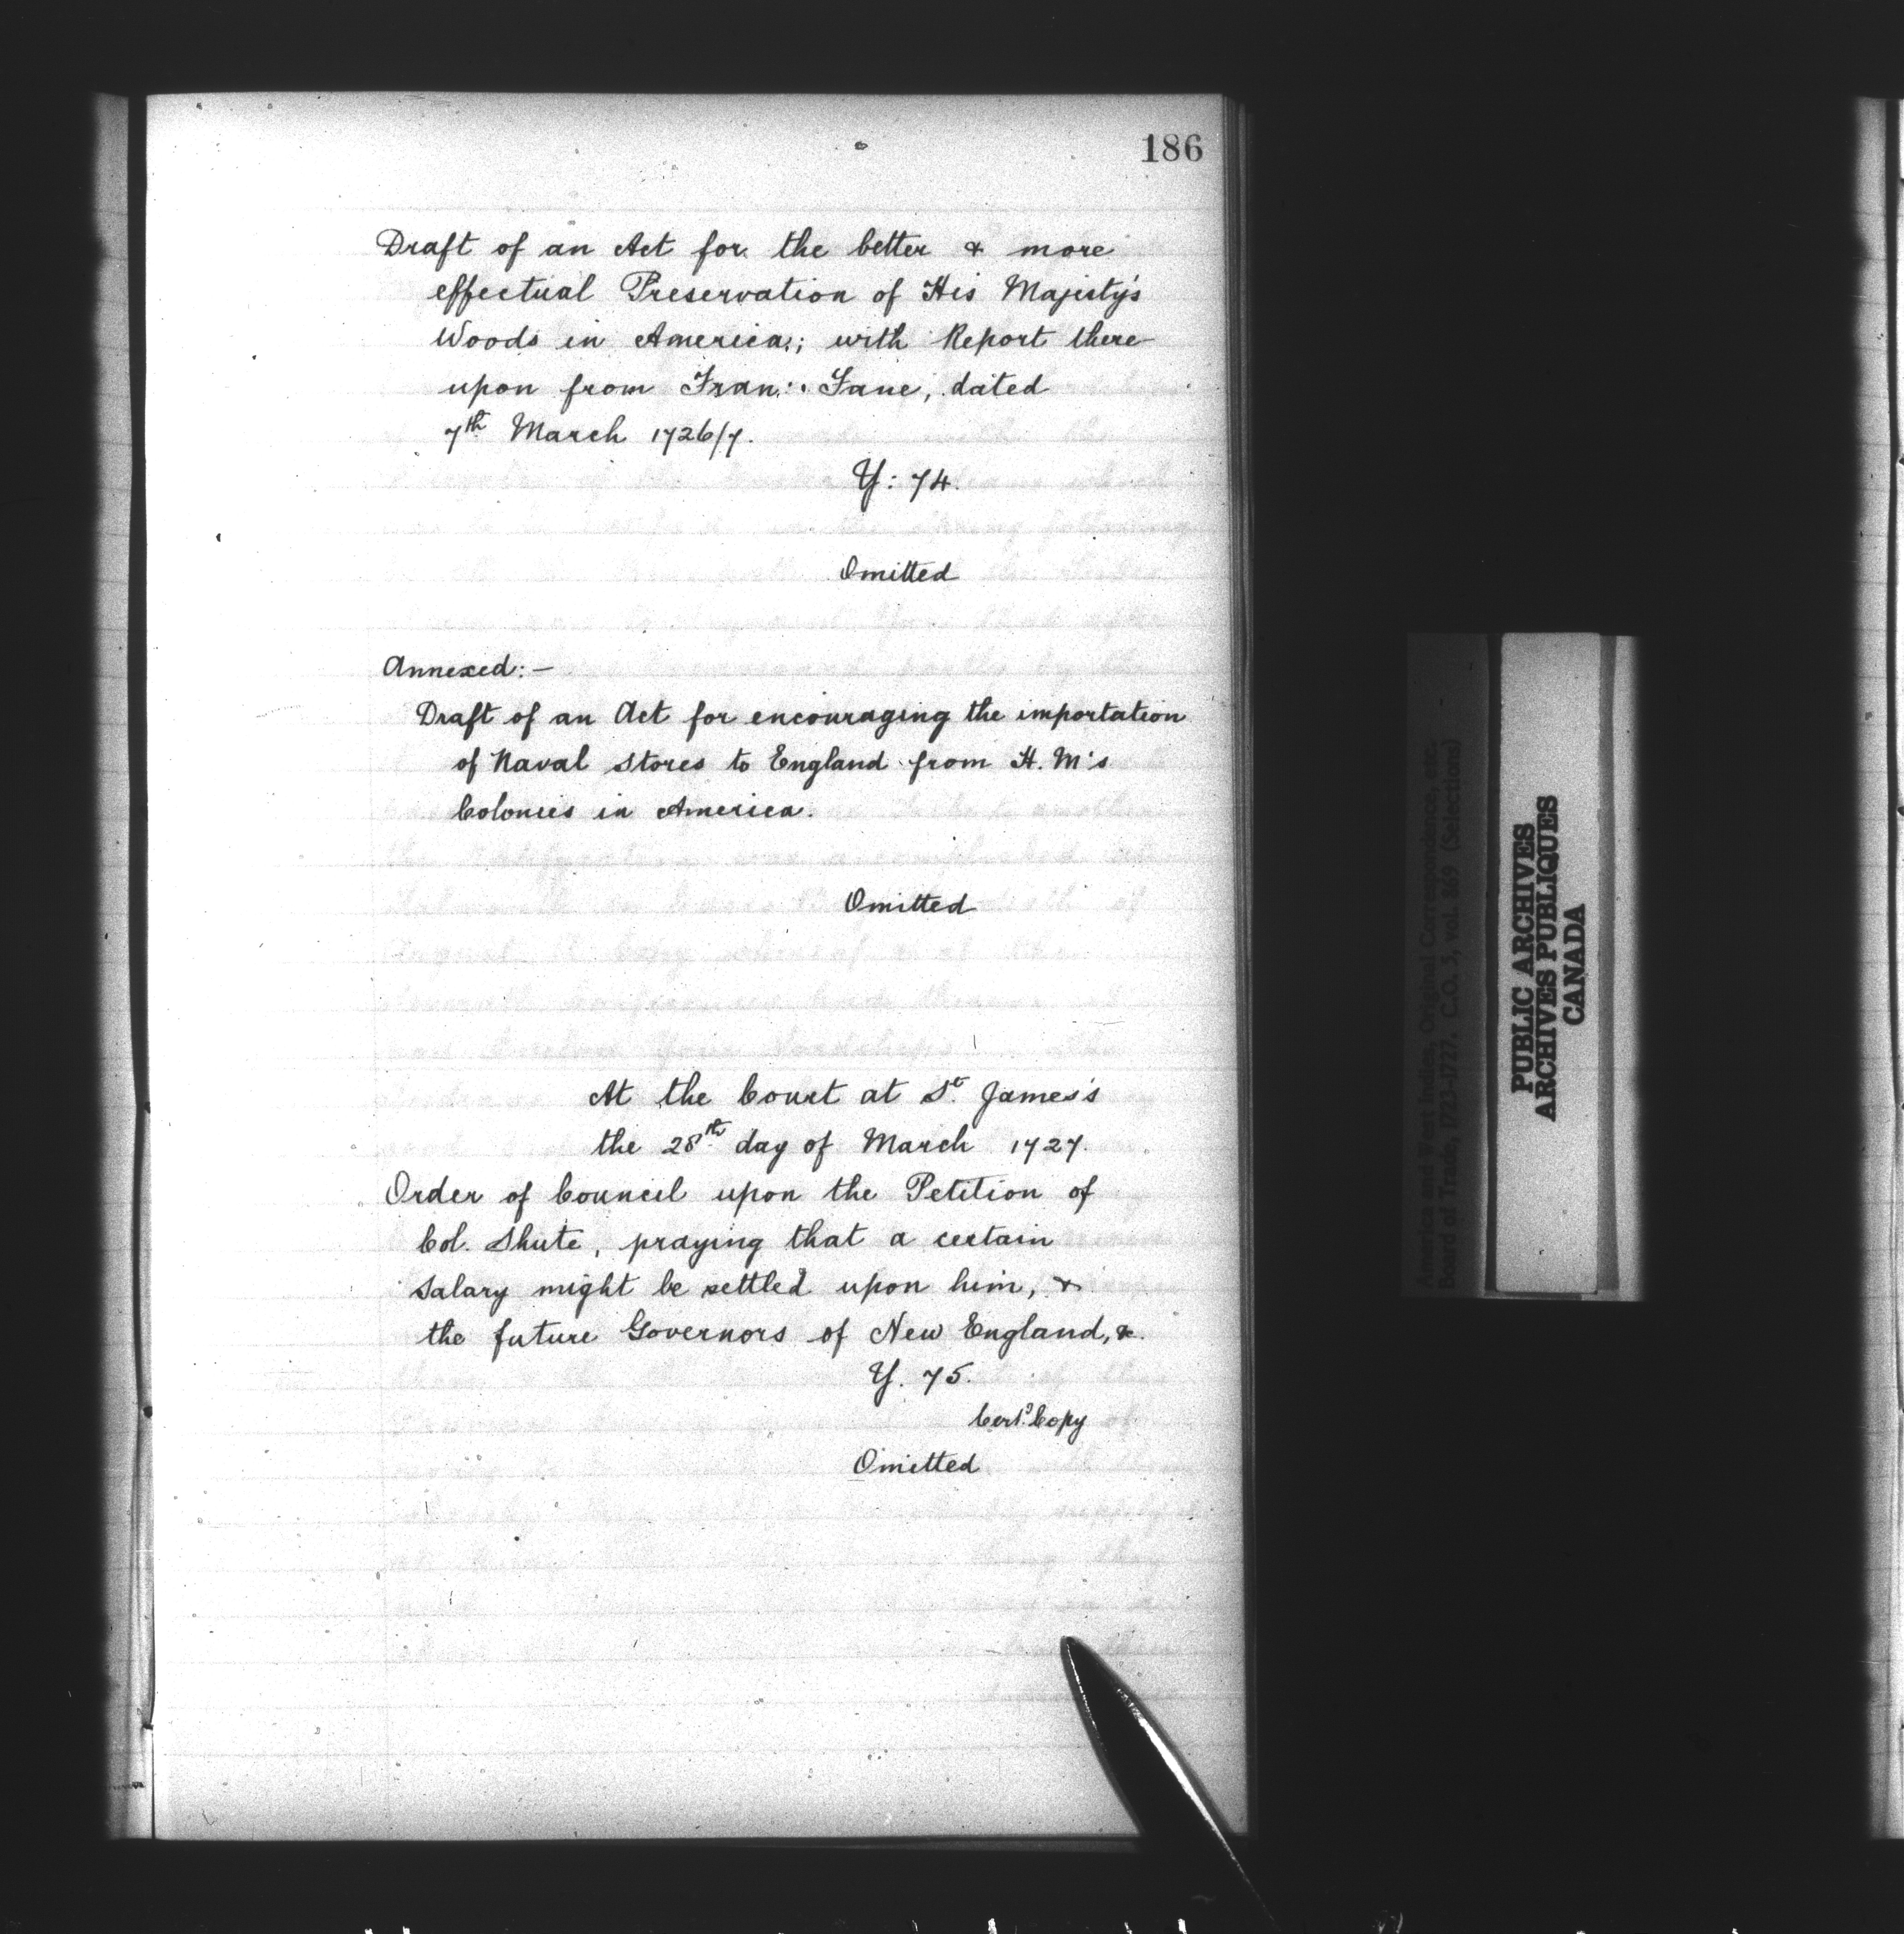 186
Draft of an Act for the better & more
effectual Preservation of His Majesty's
Woods in America; with Report there
upon from Fran: Fane, dated
7th March 1726/7.
Y: 74.
Omitted
Annexed:—
Draft of an Act for encouraging the importation
of Naval Stores to England from H. M's
Colonies in America.
Omitted
At the Court at St James's
the 28th day of March 1727.
Order of Council upon the Petition of
Col. Shute, praying that a certain
Salary might be settled upon him, &
the future Governors of New England, &.
Y. 75.
Certd Copy
Omitted
America and West Indies, Original Correspondence, etc.
Board of Trade, 1723-1727. C.O. 5, vol. 869 (Selections)
PUBLIC ARCHIVES
ARCHIVES PUBLIQUES
CANADA